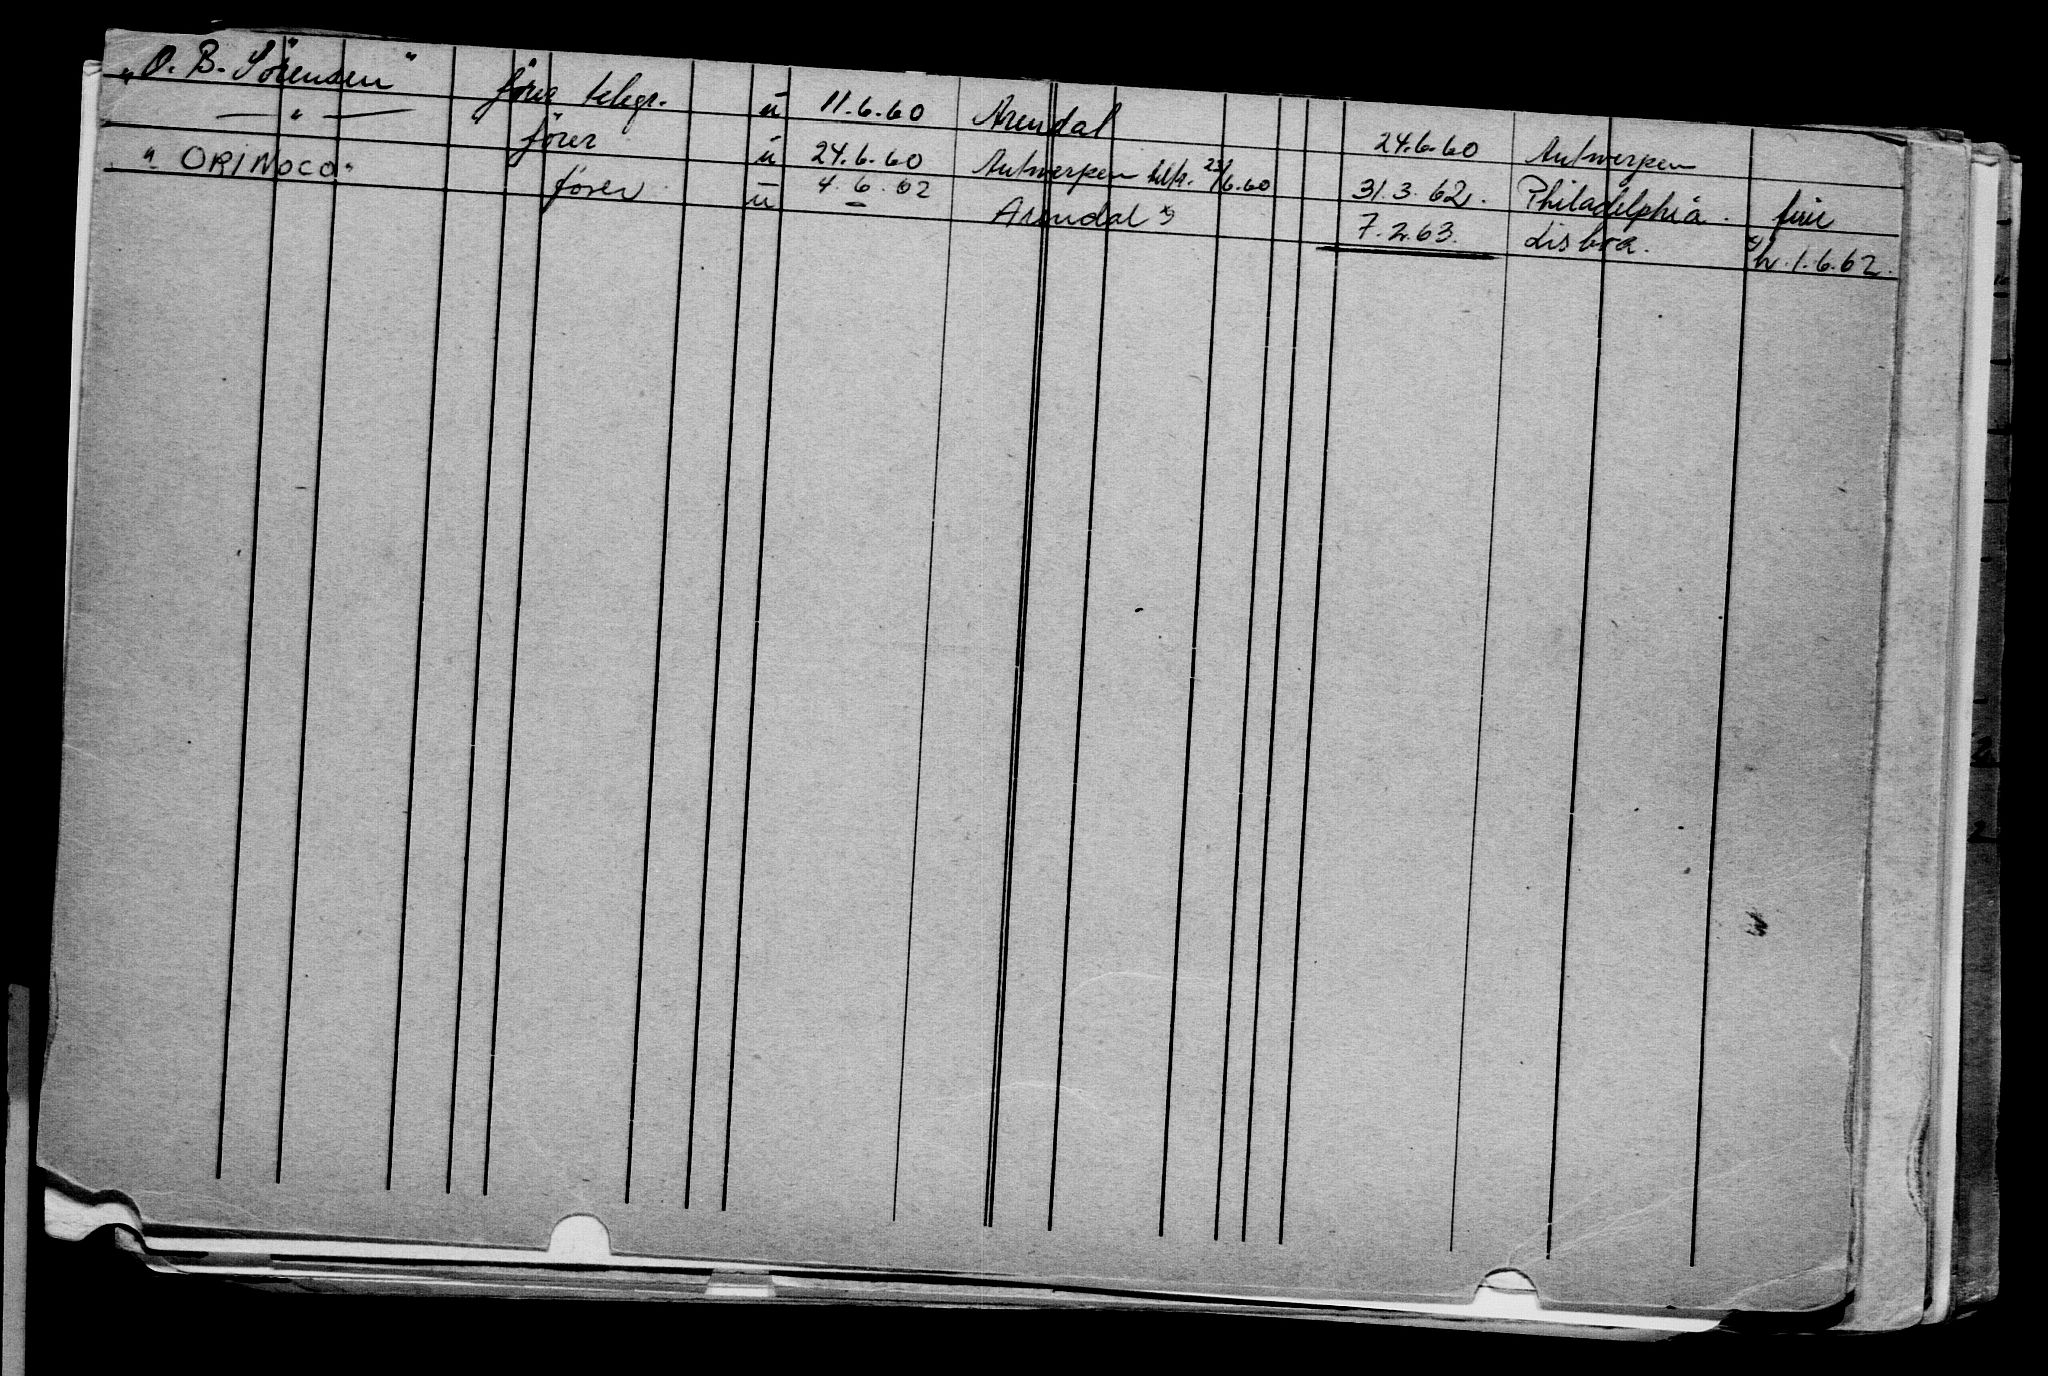 "O. B. Sörensen" förer telegr. u 11.6.60 Arendal 24.6.60 Antwerpen
— " — förer u 24.6.60 Antwerpen tiltr. 23/6.60 31.3.62. Philadelphia. ferie
"ORINOCO" förer u 4.6.62 Arendal *) 7.2.63. Lisboa. *) h. 1.6.62.